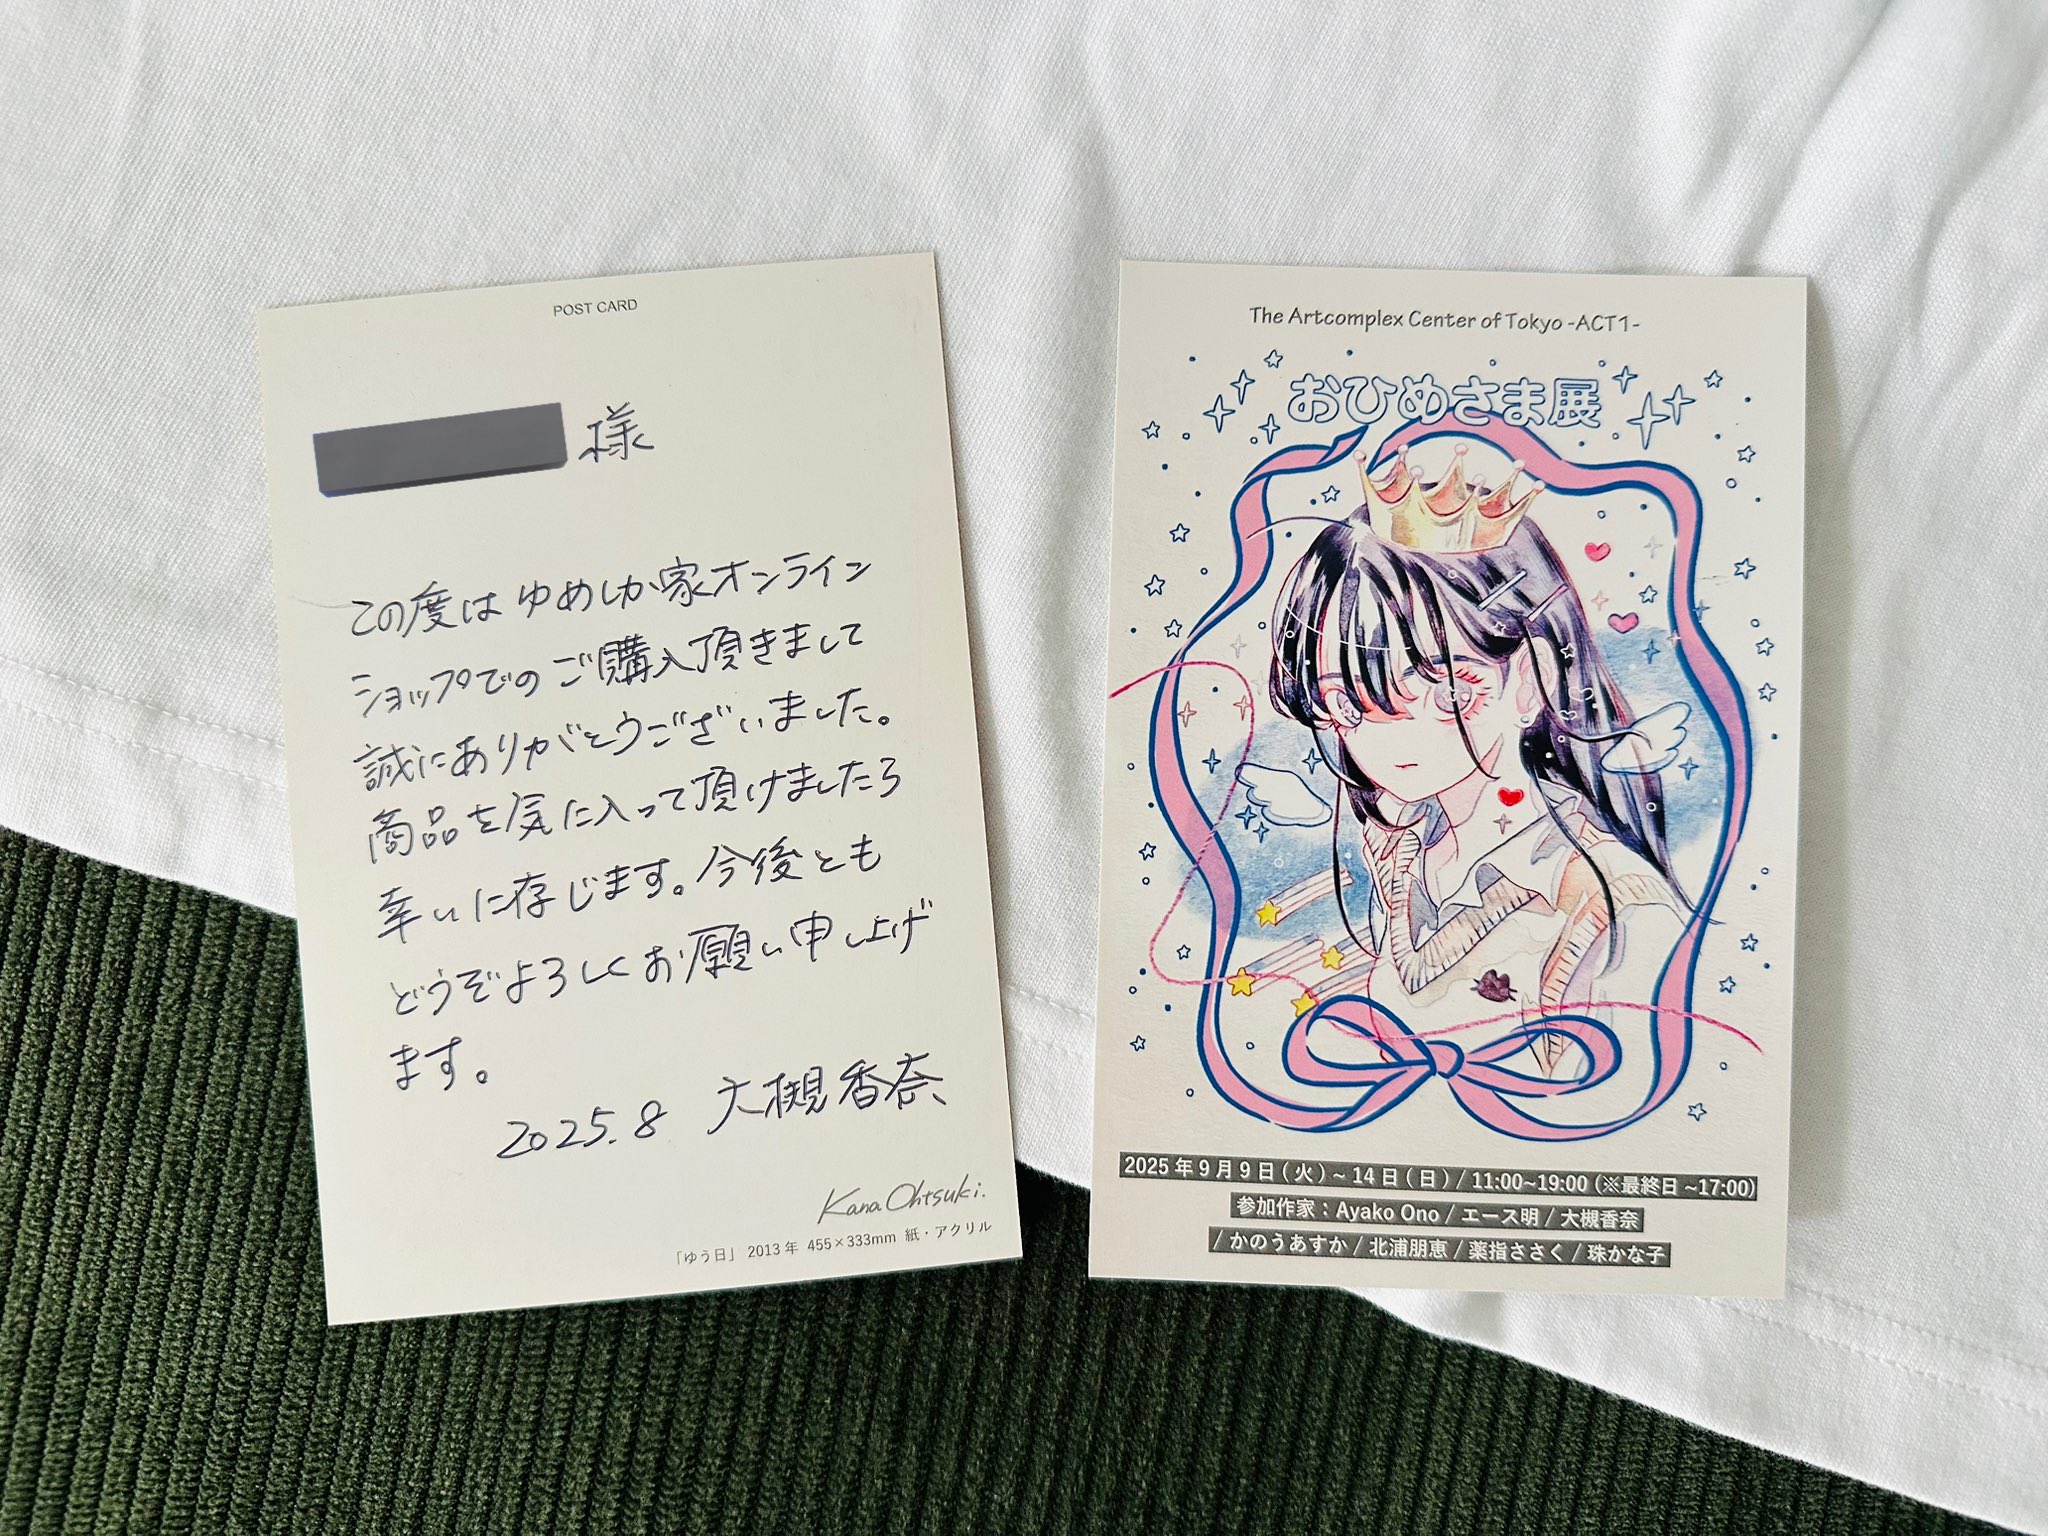 POST CARD
様
この度はゆめしか家オンライン
ショップでのご購入頂きまして
誠にありがとうございました。
商品を気に入って頂けましたら
幸いに存じます。今後とも
どうぞよろしくお願い申し上げ
ます。
2025.8 大槻香奈
Kana Ohtsuki.
「ゆう日」 2013年 455×333mm 紙・アクリル
The Artcomplex Center of Tokyo -ACT1-
おひめさま展
2025年9月9日(火)~14日(日)/11:00~19:00(※最終日~17:00)
参加作家:Ayako Ono / エース明 / 大槻香奈
/ かのうあすか / 北浦朋恵 / 薬指ささく / 珠かな子